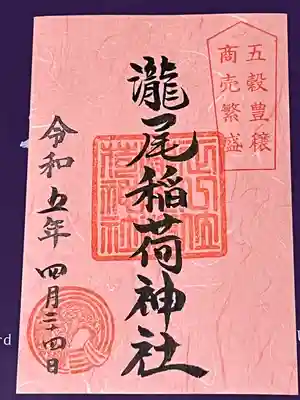 五穀豊穣
商売繁盛
瀧尾稲荷神社
令和五年 四月二十四日